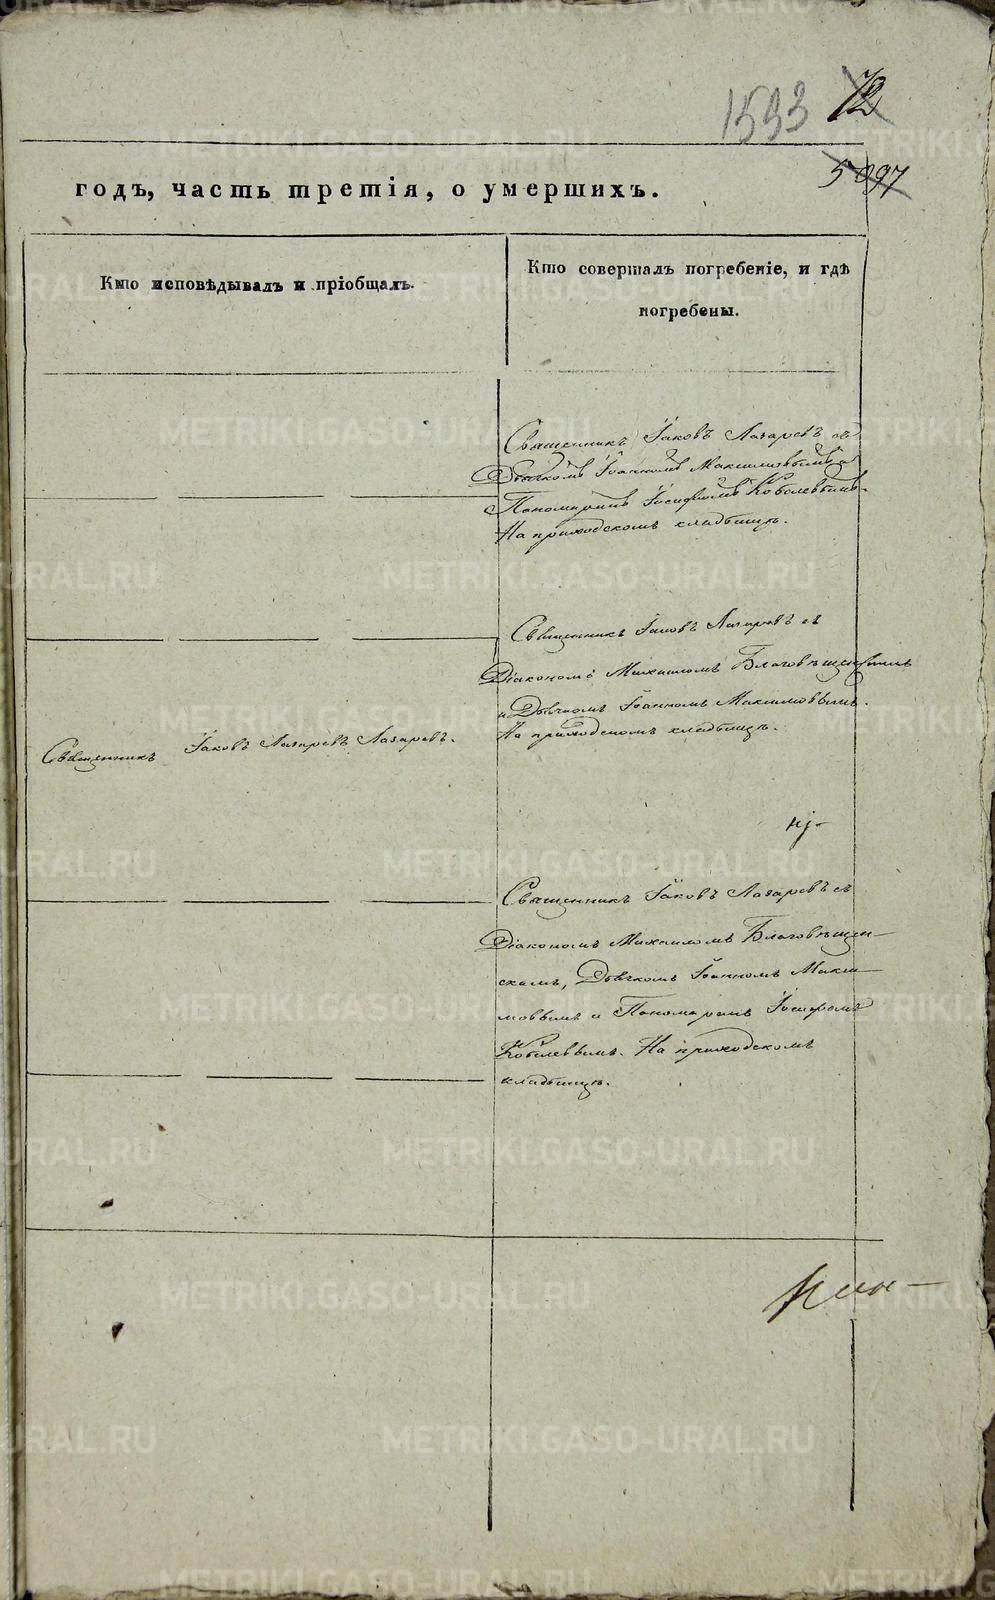 1593 72
5097
годъ, часть третія, о умершихъ.
Кто исповѣдывалъ и пріобщалъ.
Кто совершалъ погребеніе, и гдѣ
погребены.
Священникъ Іаковъ Лазаревъ съ
Дьячкомъ Іоанномъ Максимовымъ и
Пономаремъ Іосифомъ Кобелевымъ.
На приходскомъ кладбищѣ.
Священникъ Іаковъ Лазаревъ съ
Діакономъ Михаиломъ Благовѣщенскимъ
и Дьячкомъ Іоанномъ Максимовымъ.
На приходскомъ кладбищѣ.
Священникъ Іаковъ Лазаревъ Лазаревъ.
Священникъ Іаковъ Лазаревъ съ
Діакономъ Михаиломъ Благовѣщен-
скимъ, Дьячкомъ Іоанномъ Макси-
мовымъ и Пономаремъ Іосифомъ
Кобелевымъ. На приходскомъ
кладбищѣ.
METRIKI.GASO-URAL.RU